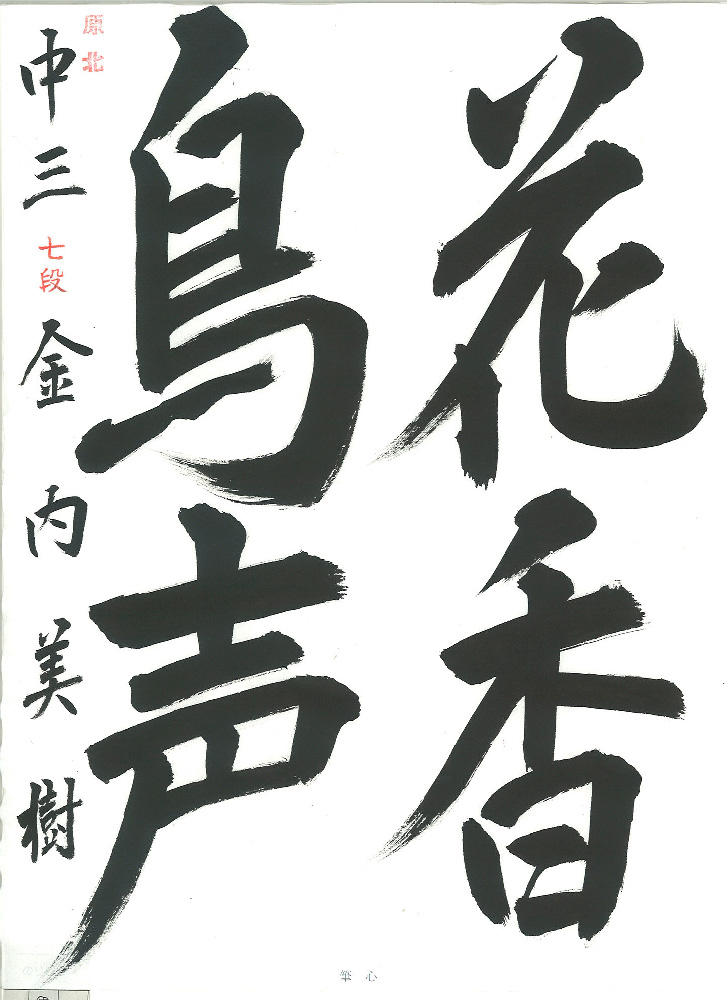 花香
鳥声
原北
中三 七段 金内美樹
筆心